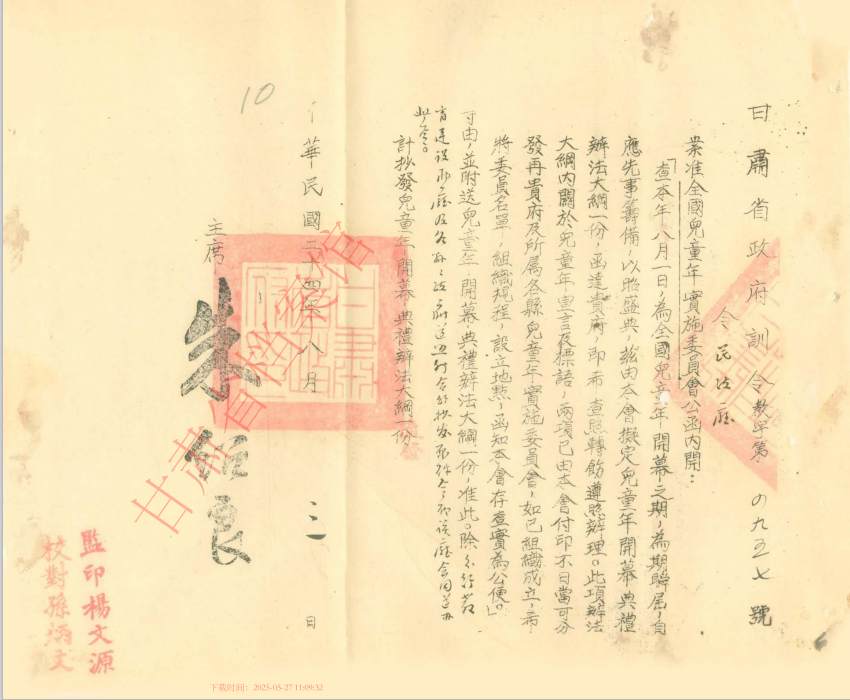 甘肅省政府訓令 教字第4957號
令民政廳
案准全國兒童年實施委員會公函內開：
「查本年八月一日，為全國兒童年開幕之期，為期瞬屆，自
應先事籌備，以昭盛典，茲由本會擬定兒童年開幕典禮
辦法大綱一份，函達貴府，即希查照轉飭遵照辦理。此項辦法
大綱內關於兒童年宣言及標語，兩項已由本會付印不日當可分
發再貴府及所屬各縣兒童年實施委員會，如已組織成立，希
將委員名單，組織規程，設立地點，函知本會存查實為公便。」
等由，並附送兒童年開幕典禮辦法大綱一份，准此。除分行教
育建設兩廳及各縣政府遵照外合行抄發原件令仰該廳會同遵辦
此令。
計抄發兒童年開幕典禮辦法大綱一份
中華民國二十四年八月三日
主席 朱紹良
監印楊文源
校對孫
10
甘肅省檔案館
下载时间：2025-05-27 11:09:32